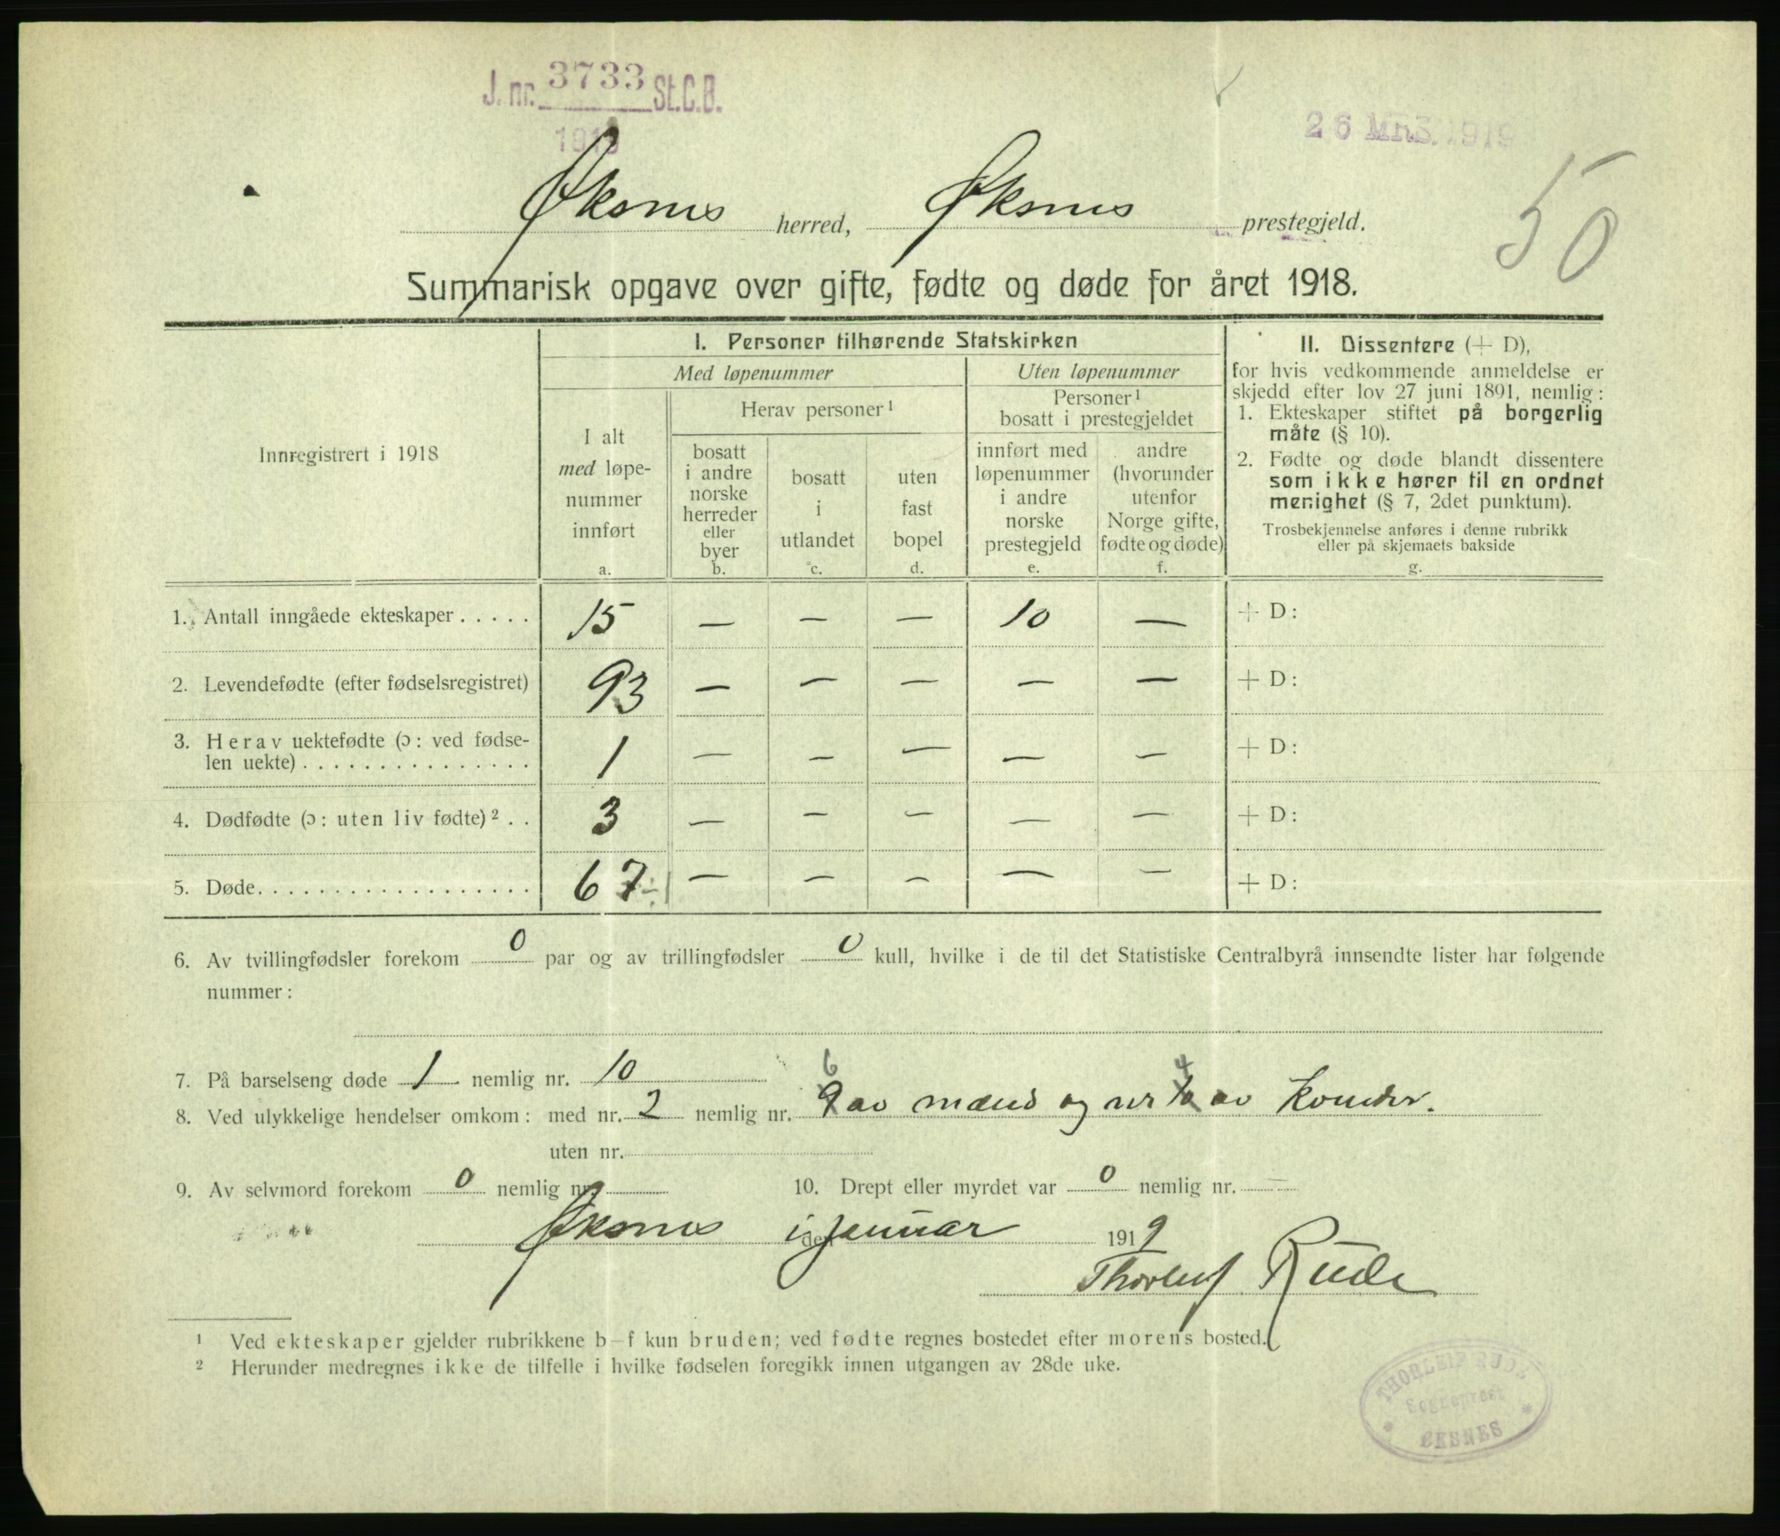 J. nr. 3733 St.C.B.
1919
26 MRS. 1919
50
Øksnes herred, Øksnes prestegjeld.
Summarisk opgave over gifte, fødte og døde for året 1918.
Innregistrert i 1918
I. Personer tilhørende Statskirken
Med løpenummer
Uten løpenummer
I alt
med løpe-
nummer
innført
a.
Herav personer¹
bosatt
i andre
norske
herreder
eller
byer
b.
bosatt
i
utlandet
c.
uten
fast
bopel
d.
Personer¹
bosatt i prestegjeldet
innført med
løpenummer
i andre
norske
prestegjeld
e.
andre
(hvorunder
utenfor
Norge gifte,
fødte og døde)
f.
II. Dissentere (+ D),
for hvis vedkommende anmeldelse er
skjedd efter lov 27 juni 1891, nemlig:
1. Ekteskaper stiftet på borgerlig
måte (§ 10).
2. Fødte og døde blandt dissentere
som ikke hører til en ordnet
menighet (§ 7, 2det punktum).
Trosbekjennelse anføres i denne rubrikk
eller på skjemaets bakside
g.
1. Antall inngåede ekteskaper . . . . . 15 — — — 10 — + D:
2. Levendefødte (efter fødselsregistret) 93 — — — — — + D:
3. Herav uektefødte (ɔ: ved fødse-
len uekte) . . . . . . . . . . . . . . . 1 — — — — — + D:
4. Dødfødte (ɔ: uten liv fødte)² . . 3 — — — — — + D:
5. Døde. . . . . . . . . . . . . . . . . . 67 ÷1 — — — — — + D:
6. Av tvillingfødsler forekom 0 par og av trillingfødsler 0 kull, hvilke i de til det Statistiske Centralbyrå innsendte lister har følgende
nummer:
7. På barselseng døde 1 nemlig nr. 10
6 4
8. Ved ulykkelige hendelser omkom: med nr. 2 nemlig nr. 9 av mænd og nr av kvinder.
uten nr.
9. Av selvmord forekom 0 nemlig nr. 10. Drept eller myrdet var 0 nemlig nr. —
Øksnes i den januar 1919
Thorleif Rude
¹ Ved ekteskaper gjelder rubrikkene b–f kun bruden; ved fødte regnes bostedet efter morens bosted.
² Herunder medregnes ikke de tilfelle i hvilke fødselen foregikk innen utgangen av 28de uke.
THORLEIF RUDE
Sogneprest
ØKSNES